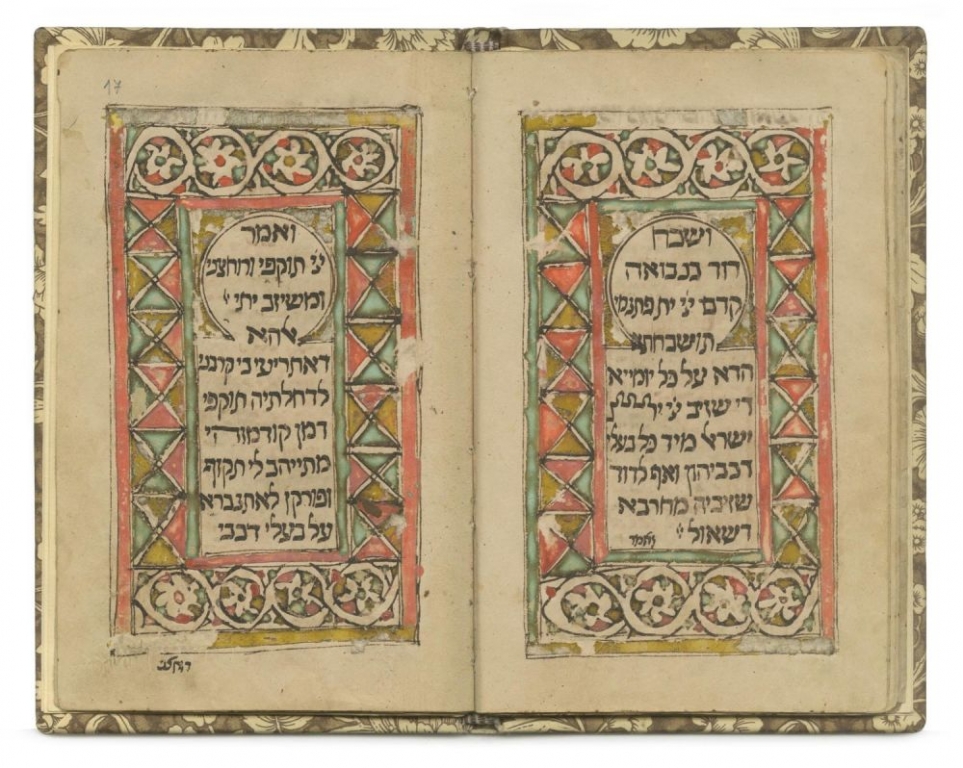 ושבח
דוד בנבואה
קדם יי ית פתגמי
תושבחתא
הדא על כל יומייא
די שזיב יי ית
ישראל מיד כל בעלי
דבביהון ואף לדוד
שזיביה מחרבא
דשאול יי ואמר
17
ואמר
יי תוקפי ורוחצני
ומשיזב יתי יי
אלהא
דאתריעי בי קרבני
לדחלתיה תוקפי
דמן קודמוהי
מתייהב לי תקוף
ופורקן לאתגברא
על בעלי דבבי